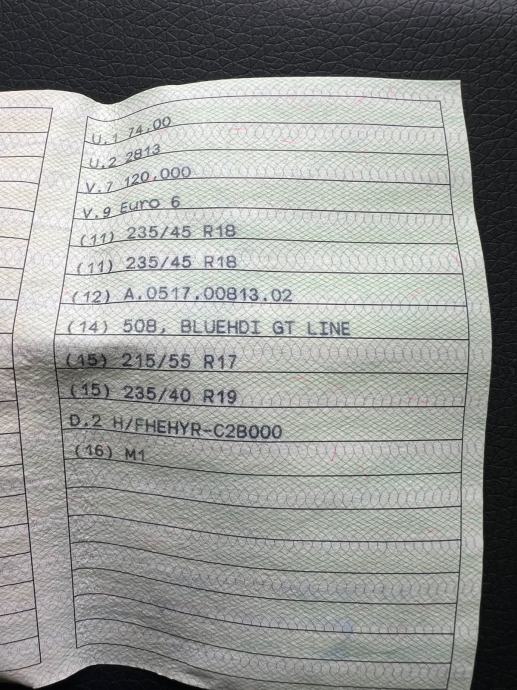 U.1 74,00
U.2 2813
V.7 120,000
V.9 Euro 6
(11) 235/45 R18
(11) 235/45 R18
(12) A.0517.00813.02
(14) 508, BLUEHDI GT LINE
(15) 215/55 R17
(15) 235/40 R19
D.2 H/FHEHYR-C2B000
(16) M1